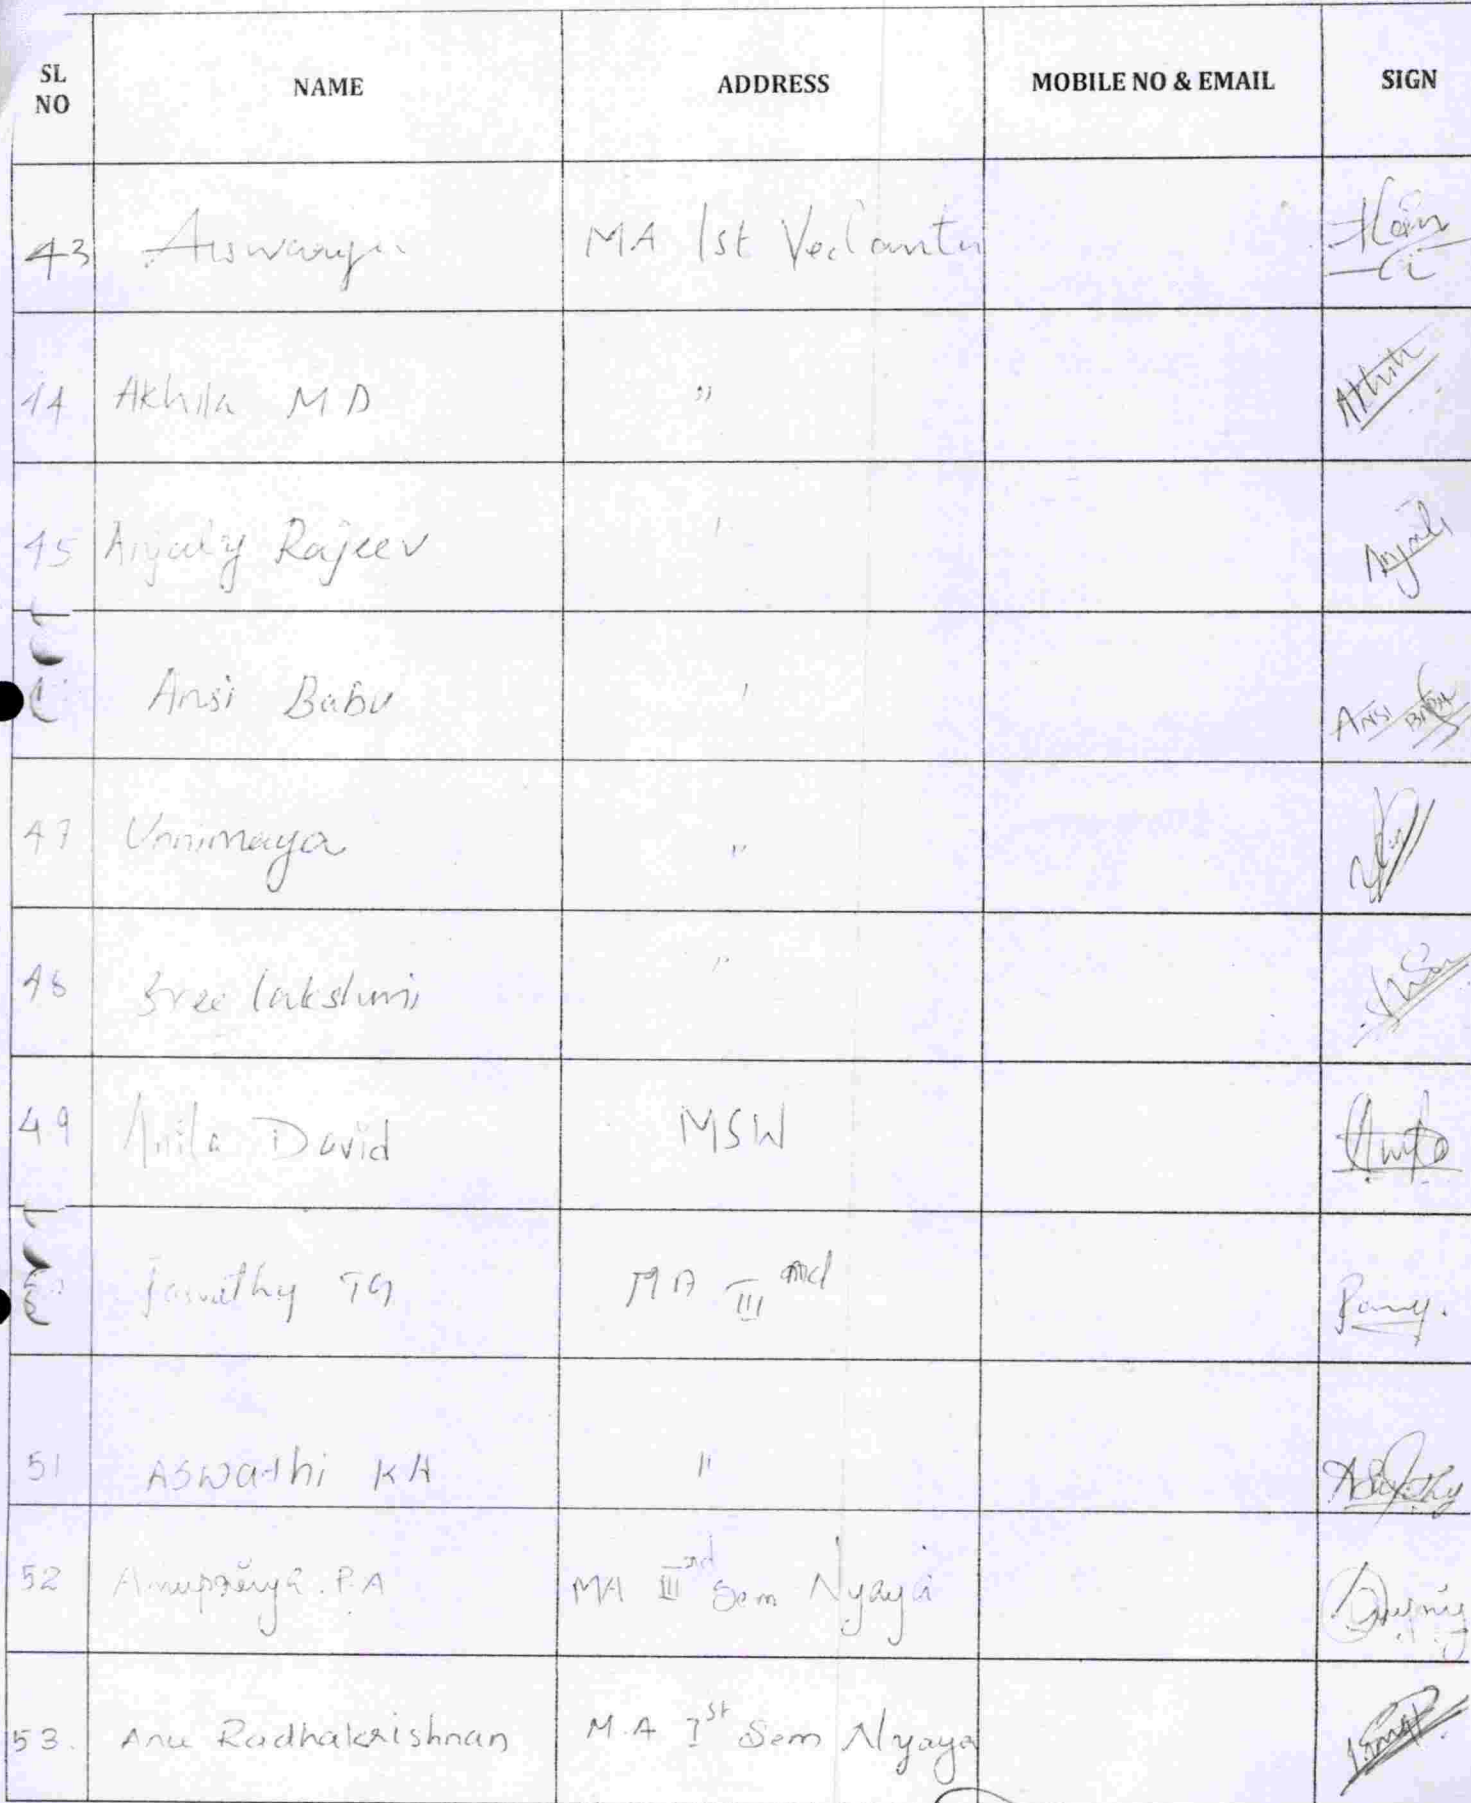 SL NO NAME ADDRESS MOBILE NO & EMAIL SIGN
43 Aiswarya MA 1st Vedanta
44 Akhila M D "
45 Anjaly Rajeev "
Ansi Babu " ANSI BABU
47 Unnimaya "
48 Sree lakshmi "
49 Anila David MSW
TG MA III rd
51 Aswathi KH "
52 Anupriya. P.A MA III rd Sem Nyaya
53. Anu Radhakrishnan M.A Ist Sem Nyaya